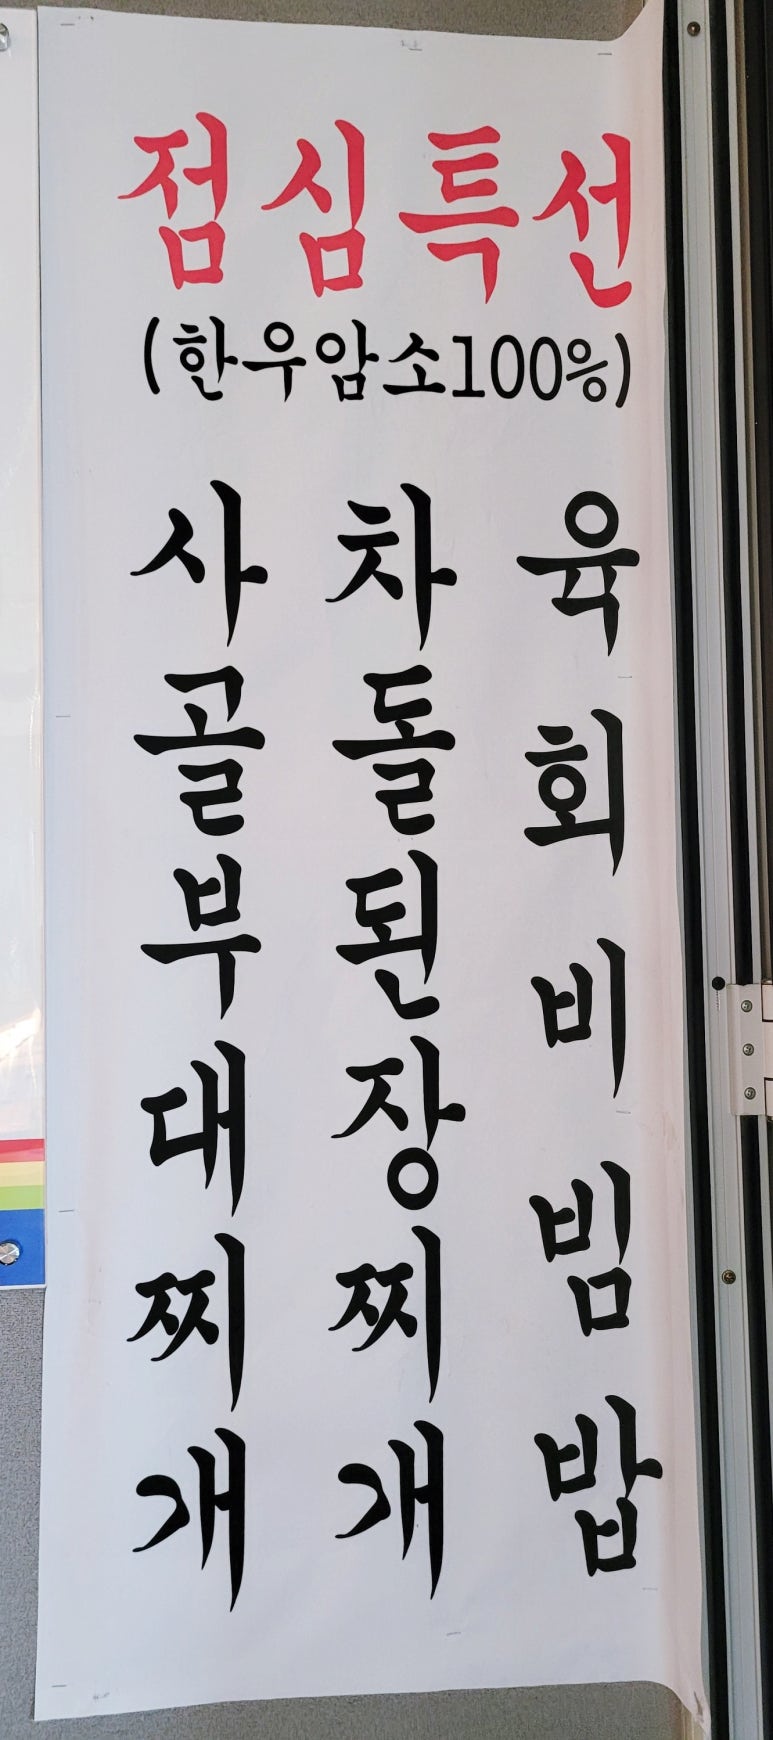 점심특선
(한우암소100%)
사골부대찌개
차돌된장찌개
육회비빔밥